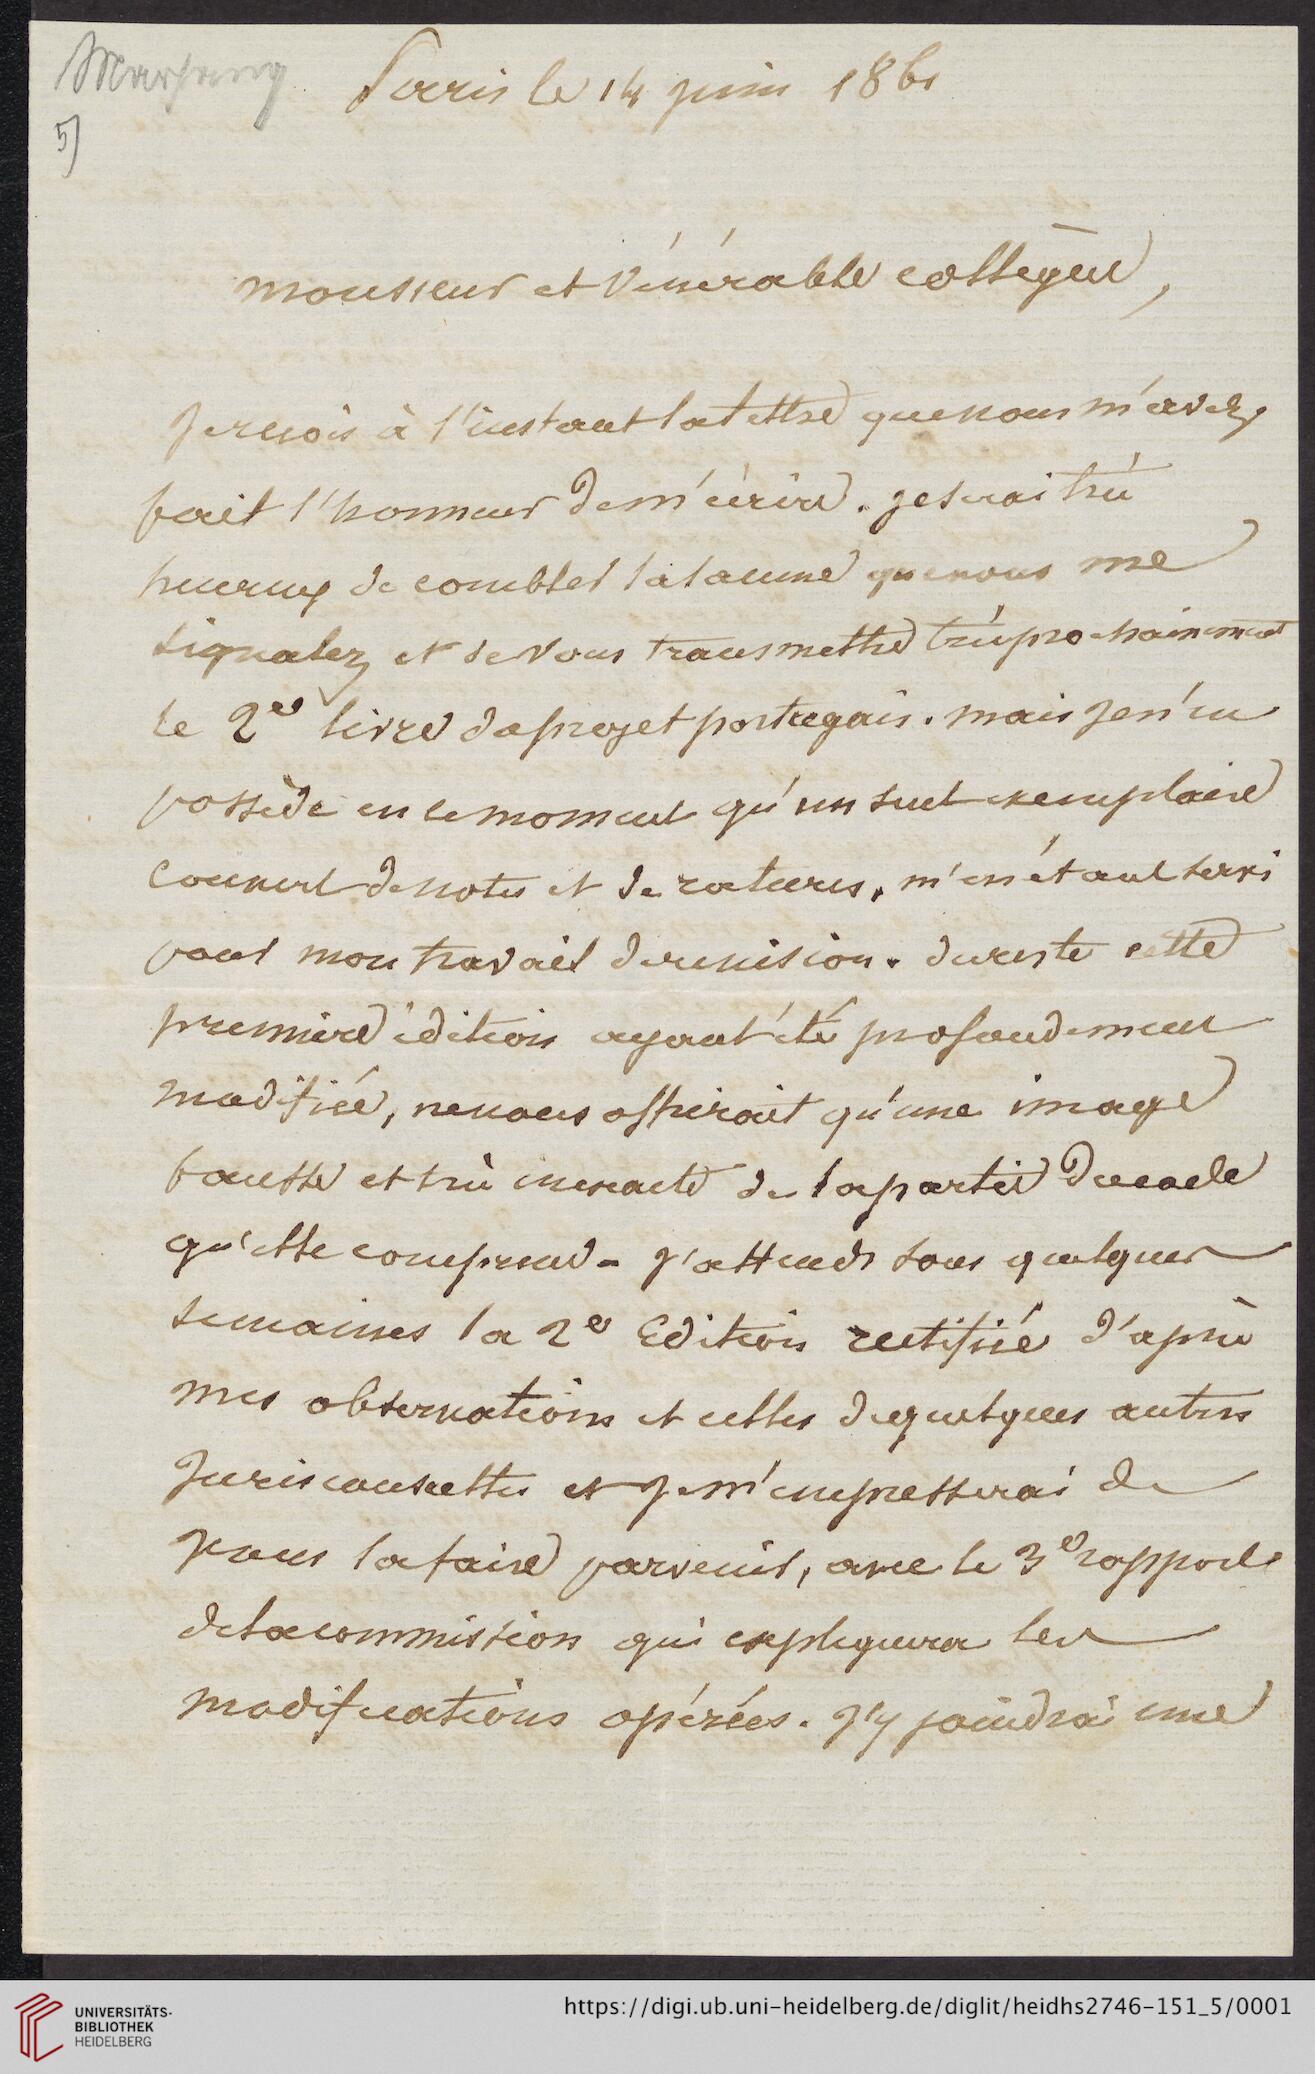 Paris le 14 juin 1861
5)
monsieur et vénérable collègue,
je reçois à l'instant la lettre que vous m'avez
fait l'honneur de m'écrire. je serai très
heureux de combler la lacune que vous me
signalez et de vous transmettre très prochainement
le 2e livre du projet portugais. mais je n'en
possède en ce moment qu'un seul exemplaire
couvert de notes et de ratures, m'en étant servi
pour mon travail de revision. du reste cette
première édition ayant été profondement
modifiée, ne vous offrirait qu'une image
fausse et très inexacte de la partie du code
qu'elle comprend. j'attends sous quelques
semaines la 2e Edition rectifiée d'après
mes observations et celles de quelques autres
jurisconsultes et je m'empresserai de
vous la faire parvenir, avec le 3e rapport
de la commission qui expliquera les
modifications opérées. j'y joindrai une
UNIVERSITÄTS-
BIBLIOTHEK
HEIDELBERG
https://digi.ub.uni-heidelberg.de/diglit/heidhs2746-151_5/0001